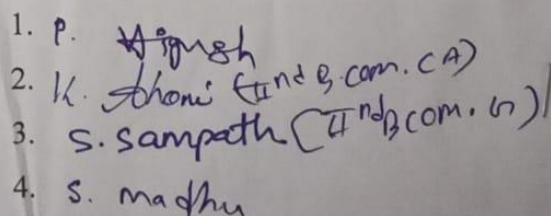 1. P. Vignesh
2. K. Thoni (IInd B.com. CA)
3. S. Sampath (IInd B com. G)
4. S. madhu